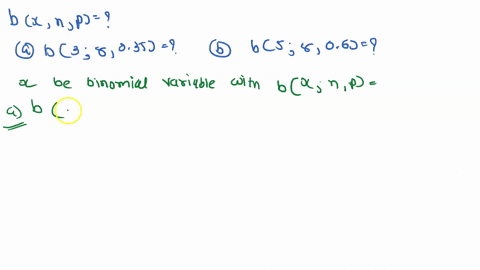 b(x,n,p)=?
ⓐ b(3;8,0.35)=? ⓑ b(5;8,0.6)=?
x be binomial variable with b(x;n,p)=
a) b(